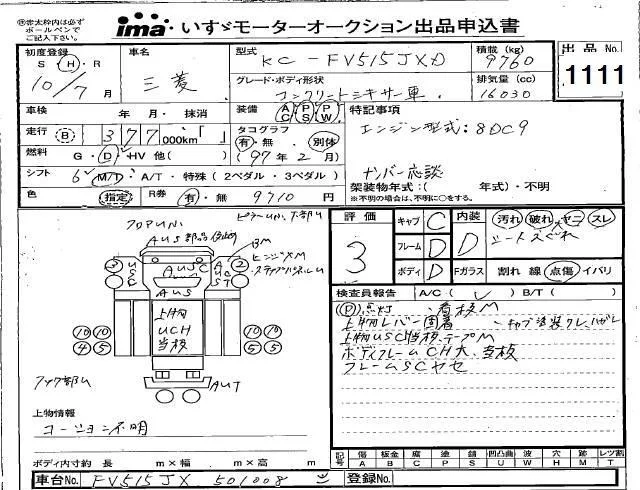 ※赤太枠内は必ず
ボールペンで
ご記入下さい。
ima いすゞモーターオークション出品申込書
初度登録
S H・R
10/7月
車名
三菱
型式
KC-FV515JXD
積載(kg)
9760
出品No.
1111
グレード・ボディ形状
コンクリートミキサー車
排気量(cc)
16030
車検 年・月・抹消
装備 AC PS PW
特記事項
エンジン型式:8DC9
走行 B 377,000km
タコグラフ
有・無 別体
(97年2月)
燃料 G・D・HV 他( )
ナンバー応談
シフト 6 M/D・A/T・特殊(2ペダル・3ペダル)
架装物年式:( 年式)・不明
※不明の場合は、不明に○をする。
色 指定 R券 有・無 9710円
フロアUハ
AUS
BM
ヒンジXM
AUSC
AUS
上物
UCH
当板
10 10 10 10
4 5 5 5
AUT
上物情報
コーション不明
ボディ内寸約 長 m×幅 m×高 m
評価
3
キャブ C
フレーム D
ボディ D
内装 D
汚れ 破れ ヤニ スレ
シートスぐれ
Fガラス 割れ 線 点傷 イバリ
検査員報告 A/C( ✓ ) B/T( )
P点灯 ・看板M
上物レバー固着 ・キャブ塗装クレ、ハガレ
上物USC当板、テープM
ボディフレームCH大、当板
フレームSCヤセ
記号 傷 板金 腐 塗 錆 凹凸曲 波 穴 跡 レツ割
A B C P S U W H M T
車台No. FV515JX 501008
登録No.